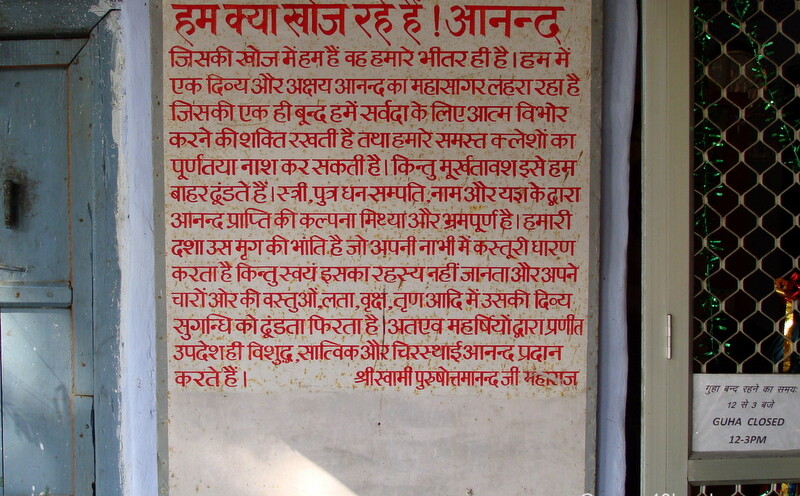 हम क्या खोज रहे हैं ! आनन्द
जिसकी खोज में हम हैं वह हमारे भीतर ही है। हम में
एक दिव्य और अक्षय आनन्द का महासागर लहरा रहा है
जिसकी एक ही बून्द हमें सर्वदा के लिए आत्म विभोर
करने की शक्ति रखती है तथा हमारे समस्त क्लेशों का
पूर्णतया नाश कर सकती है। किन्तु मूर्खतावश इसे हम
बाहर ढूंडते हैं। स्त्री, पुत्र धन सम्पति, नाम और यज्ञ के द्वारा
आनन्द प्राप्ति की कल्पना मिथ्या और भ्रमपूर्ण है। हमारी
दशा उस मृग की भांति है जो अपनी नाभी में कस्तूरी धारण
करता है किन्तु स्वयं इसका रहस्य नहीं जानता और अपने
चारों ओर की वस्तुओं, लता, वृक्ष, तृण आदि में उसकी दिव्य
सुगन्धि को ढूंडता फिरता है। अतएव महर्षियों द्वारा प्रणीत
उपदेश ही विशुद्ध, सात्विक और चिरस्थाई आनन्द प्रदान
करते हैं। श्री स्वामी पुरुषोत्तमानन्द जी महाराज
गुहा बन्द रहने का समय:
12 से 3 बजे
GUHA CLOSED
12-3PM